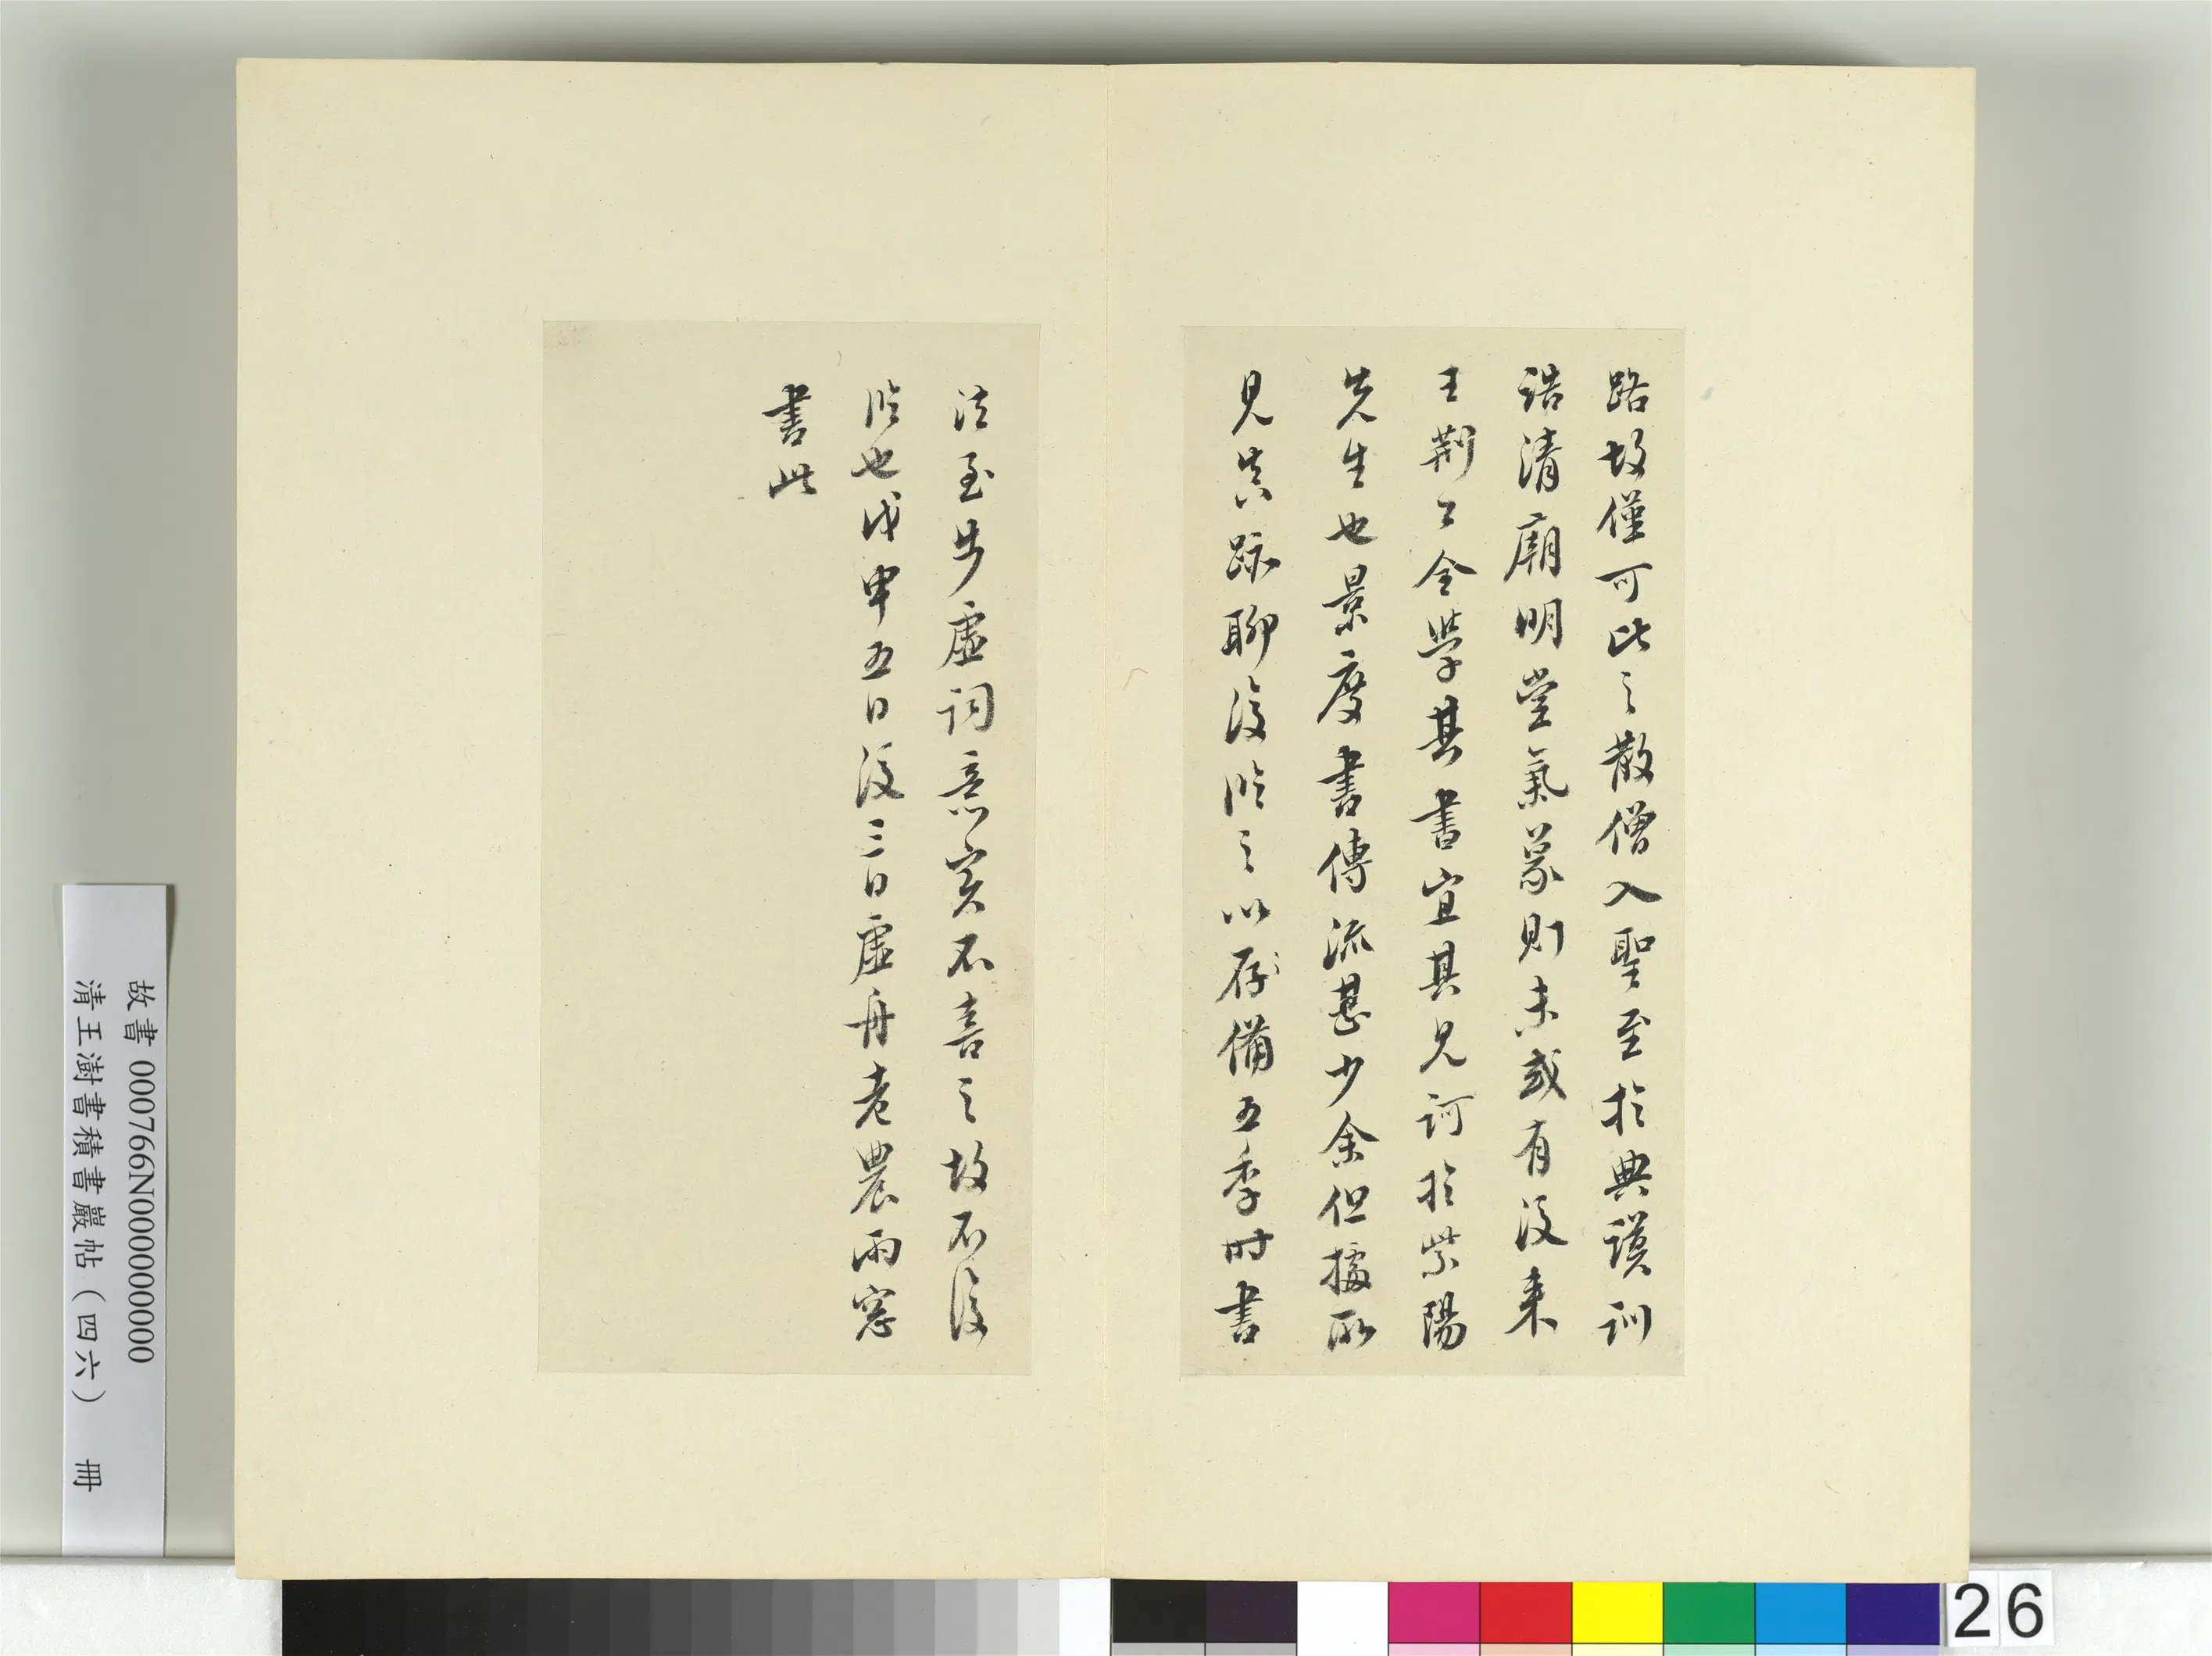 路故僅可比之散僧入聖至於典謨訓
誥清廟明堂氣象則未或有後来
王荆公全學其書宜其見訶於紫陽
先生也景度書傳流甚少余但據所
見真跡聊復臨之以存備五季時書
法至步虛詞意實不喜之故不復
臨也戊申五日後三日虛舟老農雨窓
書此
故書 000766N000000000
清王澍書積書巖帖（四六） 冊
26